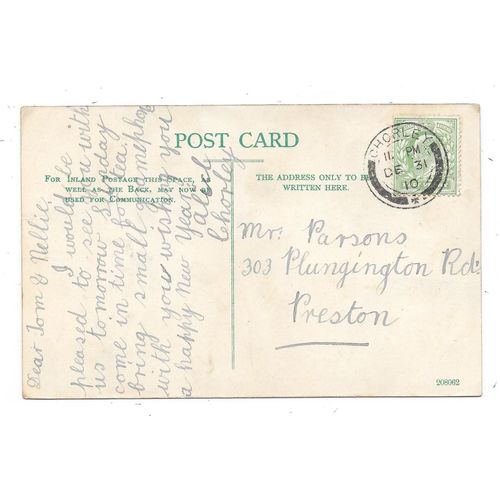 POST CARD
FOR INLAND POSTAGE THIS SPACE, AS
WELL AS THE BACK, MAY NOW BE
USED FOR COMMUNICATION.
THE ADDRESS ONLY TO BE
WRITTEN HERE.
CHORLEY
11 PM
DE 31
10
Mr. Parsons
303 Plungington Rd.
Preston
208062
Dear Tom & Nellie
I would be
pleased to see you with
us tomorrow Sunday
come in time for tea,
bring small
with you wishing you
a happy New Year
Chorley